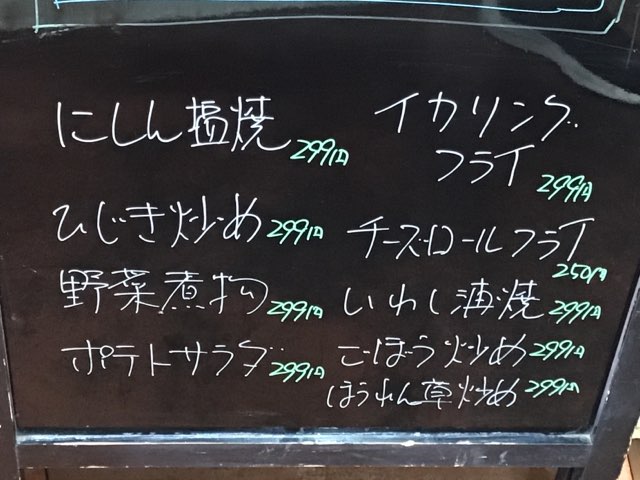 にしん塩焼 299円
ひじき炒め 299円
野菜煮物 299円
ポテトサラダ 299円
イカリング
フライ 299円
チーズロールフライ
250円
いわし蒲焼 299円
ごぼう炒め 299円
ほうれん草炒め 299円